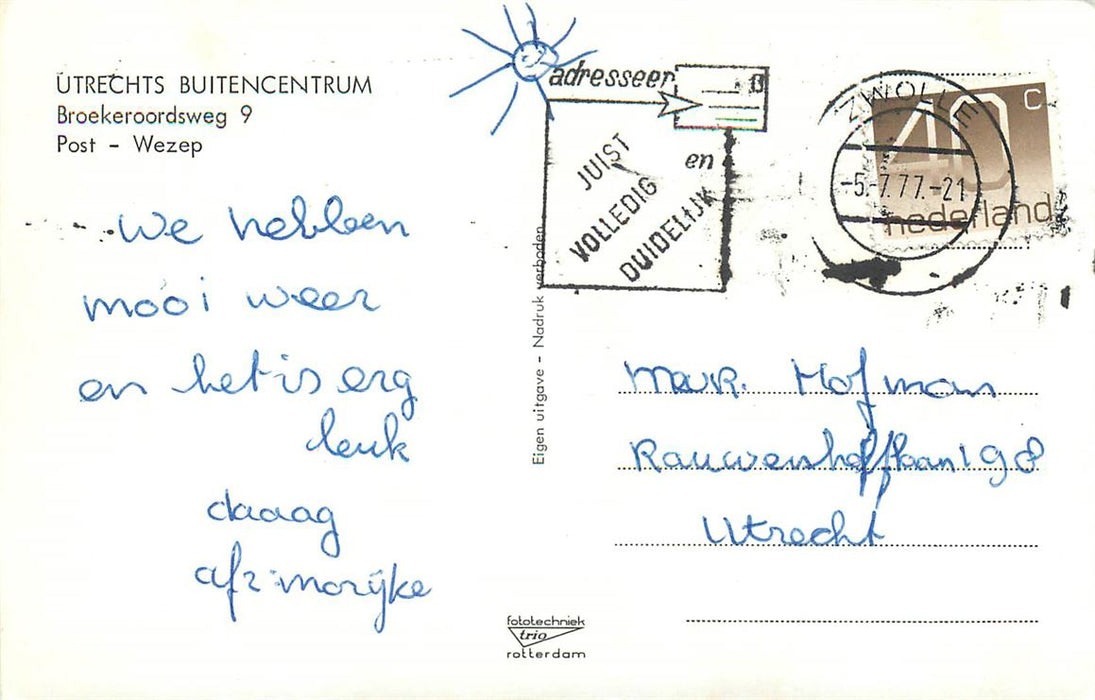 UTRECHTS BUITENCENTRUM
Broekeroordsweg 9
Post - Wezep
We hebben
mooi weer
en het is erg
leuk
daaag
afz: marijke
adresseer
JUIST
VOLLEDIG
en
DUIDELIJK
ZWOLLE
-5.-7.77.-21
40 c
nederland
Eigen uitgave - Nadruk verboden
Mark. Hofman
Rauwenhofflaan 198
Utrecht
fototechniek
trio
rotterdam